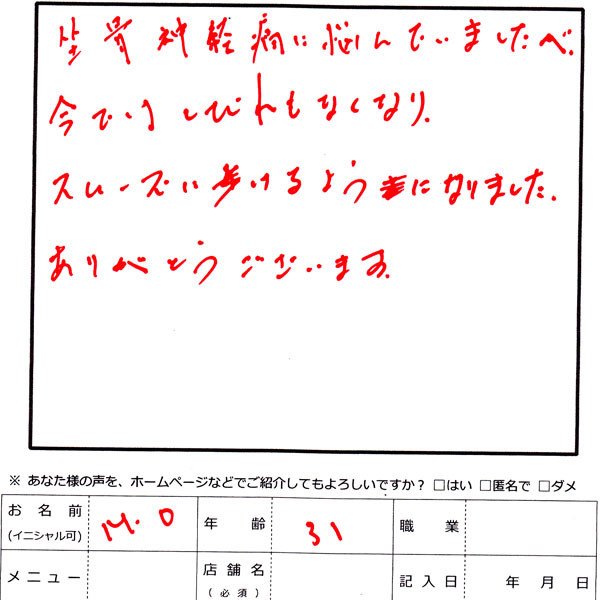 坐骨神経痛に悩んでいましたが、
今では しびれもなくなり、
スムーズに歩けるようになりました。
ありがとうございます。
※ あなた様の声を、ホームページなどでご紹介してもよろしいですか？ □はい □匿名で □ダメ
お名前 (イニシャル可) M.O 年齢 31 職業
メニュー 店舗名 (必須) 記入日 年 月 日